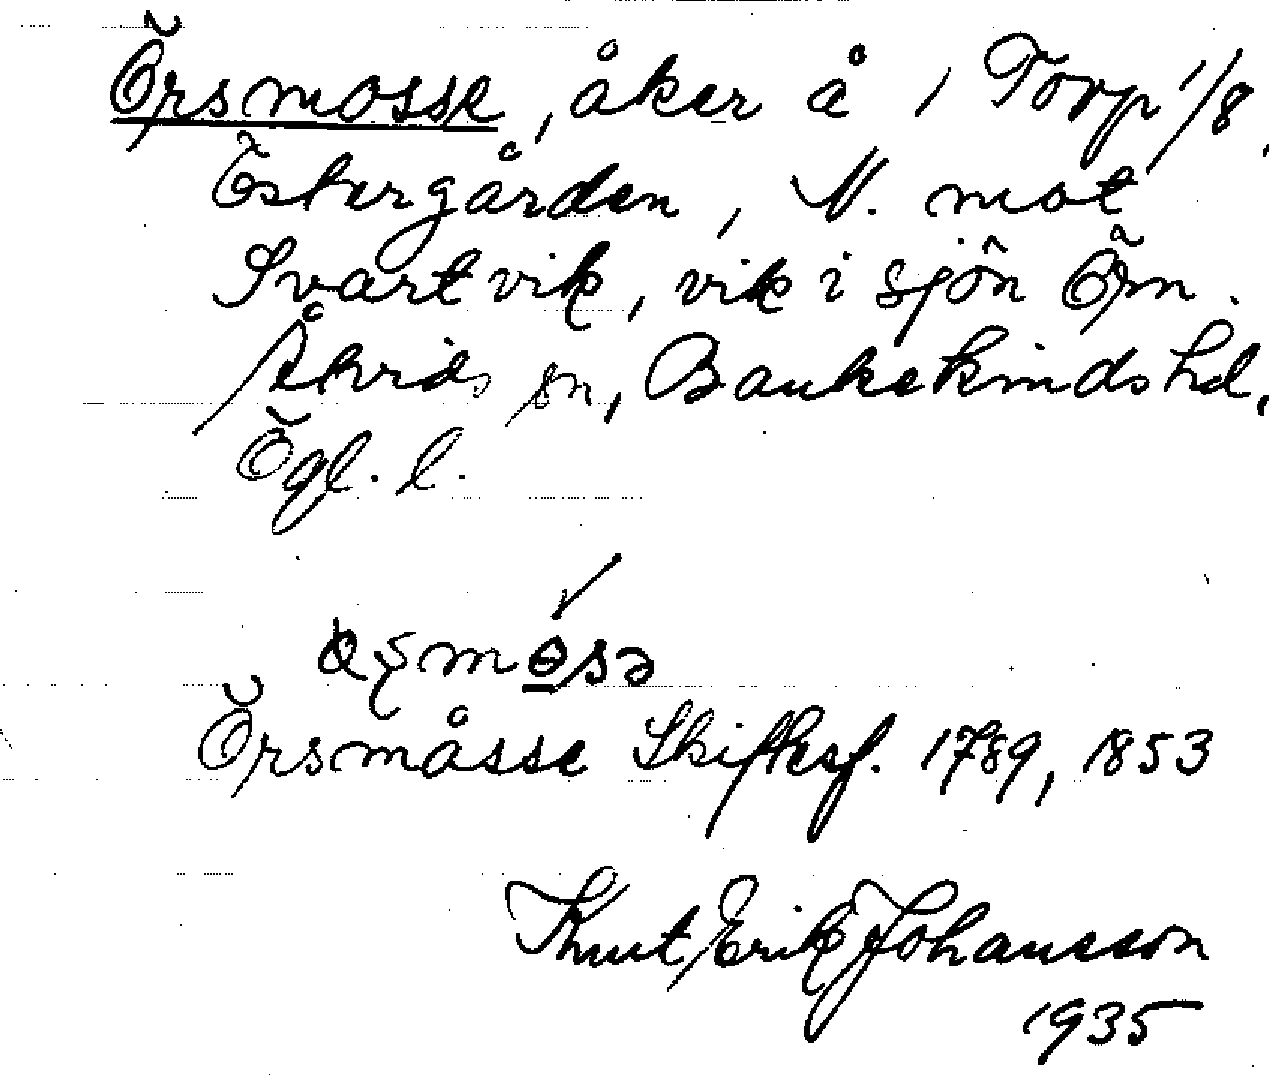 Örsmosse, åker å 1 Torp 1/8,
Östergården, N. mot
Svartvik, vik i sjön Örn.
Åtvids sn, Bankekinds hd,
Ögl. l.
Örsmåsse Skiftesf. 1789, 1853
Knut Erik Johansson
1935